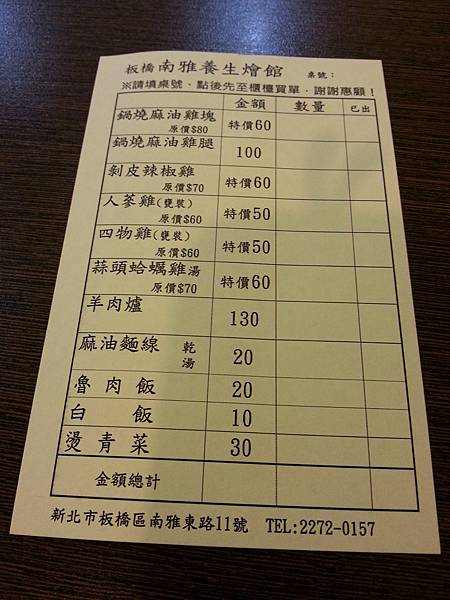 板橋南雅養生燴館 桌號：
※請填桌號、點後先至櫃檯買單，謝謝惠顧！
金額 數量 已出
鍋燒麻油雞塊 原價$80 特價60
鍋燒麻油雞腿 100
剝皮辣椒雞 原價$70 特價60
人蔘雞(甕裝) 原價$60 特價50
四物雞(甕裝) 原價$60 特價50
蒜頭蛤蠣雞湯 原價$70 特價60
羊肉爐 130
麻油麵線 乾 湯 20
魯肉飯 20
白飯 10
燙青菜 30
金額總計
新北市板橋區南雅東路11號 TEL:2272-0157